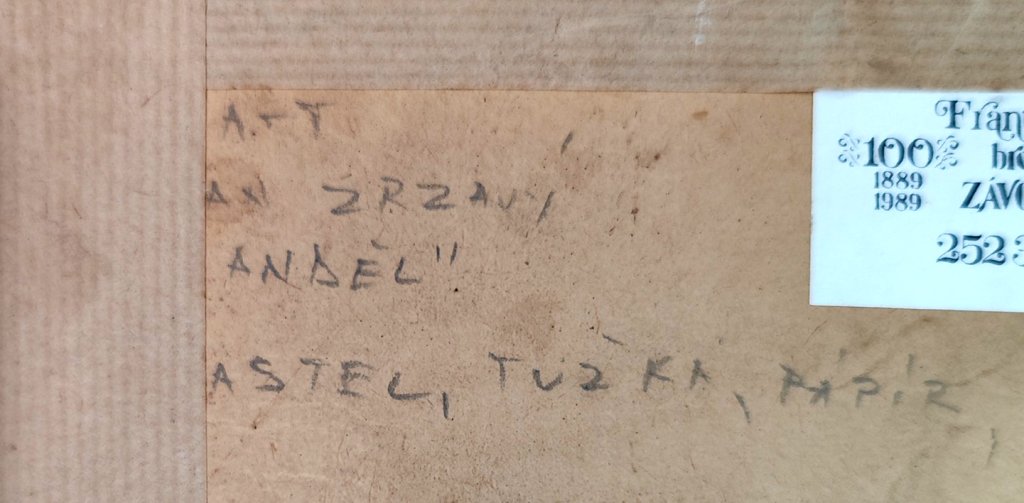 A.T
AN ZRZAVÝ
ANDĚL"
ASTEL, TUŽKA, PAPÍR
Fran
100 br
1889
1989 ZÁV
252 3